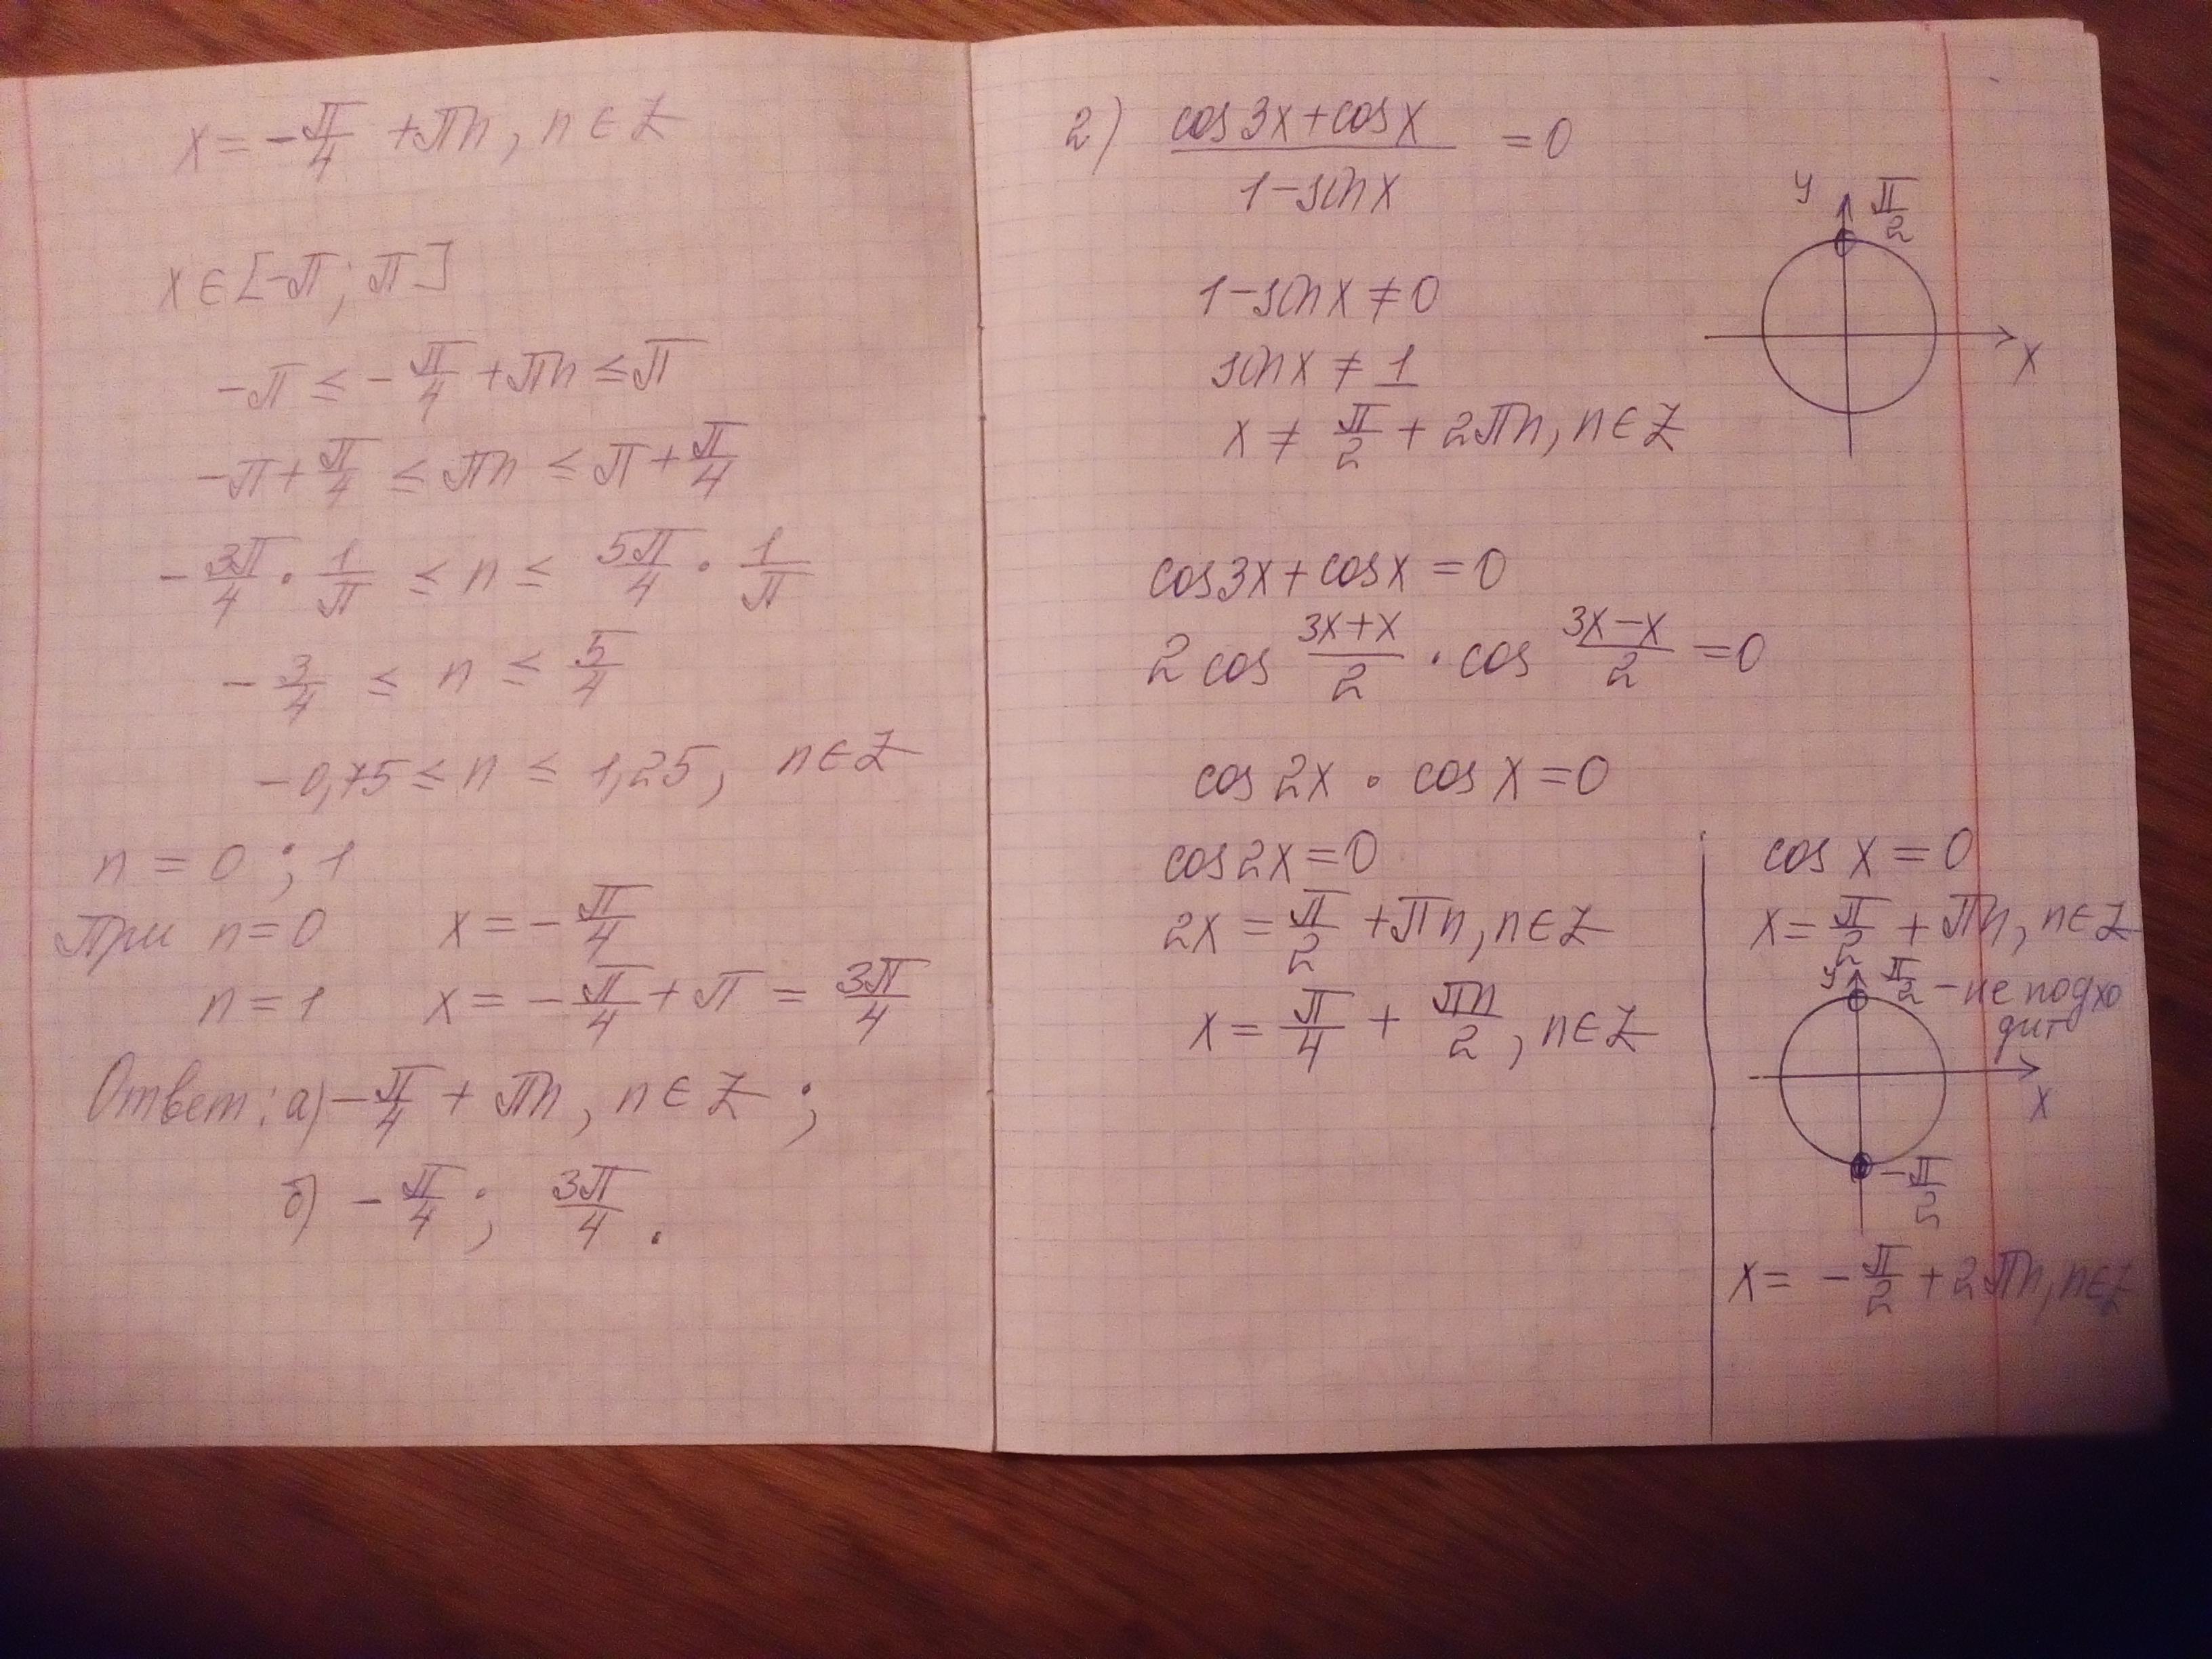 x = -π/4 + πn, n ∈ Z
x ∈ [-π; π]
-π ≤ -π/4 + πn ≤ π
-π + π/4 ≤ πn ≤ π + π/4
-3π/4 · 1/π ≤ n ≤ 5π/4 · 1/π
-3/4 ≤ n ≤ 5/4
-0,75 ≤ n ≤ 1,25, n ∈ Z
n = 0; 1
При n = 0 x = -π/4
n = 1 x = -π/4 + π = 3π/4
Ответ: а) -π/4 + πn, n ∈ Z;
б) -π/4; 3π/4.
2) (cos 3x + cos x)/(1 - sin x) = 0
1 - sin x ≠ 0
sin x ≠ 1
x ≠ π/2 + 2πn, n ∈ Z
y
π/2
x
cos 3x + cos x = 0
2 cos (3x + x)/2 · cos (3x - x)/2 = 0
cos 2x · cos x = 0
cos 2x = 0
2x = π/2 + πn, n ∈ Z
x = π/4 + πn/2, n ∈ Z
cos x = 0
x = π/2 + πn, n ∈ Z
y
π/2 - не подхо
дит
x
-π/2
x = -π/2 + 2πn, n ∈ Z